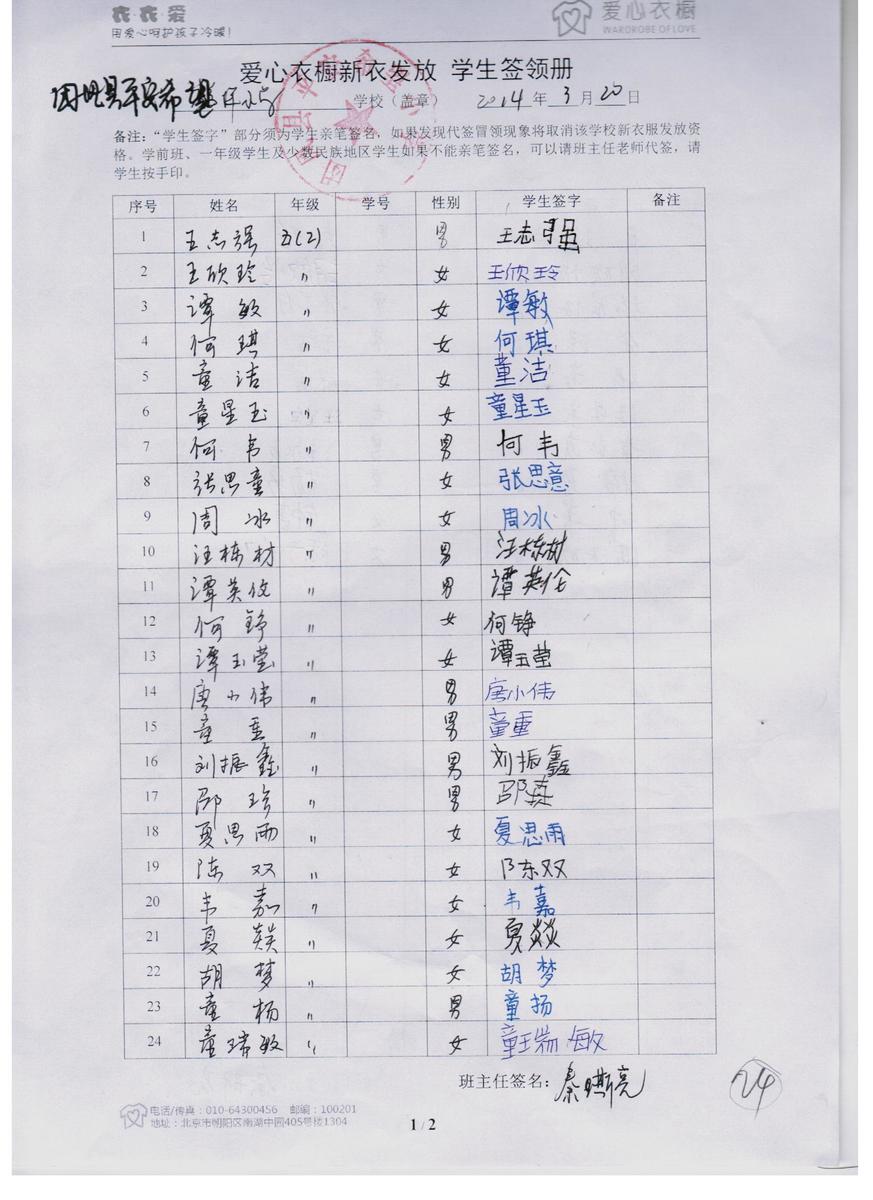 衣·衣·爱
用爱心呵护孩子冷暖!
爱心衣橱
WARDROBE OF LOVE
爱心衣橱新衣发放 学生签领册
平安希望 学校（盖章） 2014 年 3 月 20 日
备注：“学生签字”部分须为学生亲笔签名，如果发现代签冒领现象将取消该学校新衣服发放资
格。学前班、一年级学生及少数民族地区学生如果不能亲笔签名，可以请班主任老师代签，请
学生按手印。
序号 姓名 年级 学号 性别 学生签字 备注
1 王志强 五(2) 男 王志强
2 王欣玲 〃 女 王欣玲
3 谭敏 〃 女 谭敏
4 何琪 〃 女 何琪
5 童洁 〃 女 童洁
6 童星玉 〃 女 童星玉
7 何韦 〃 男 何韦
8 张思童 〃 女 张思意
9 周冰 〃 女 周冰
10 汪栋材 〃 男 汪栋树
11 谭英 〃 男 谭英伦
12 何铮 〃 女 何铮
13 谭玉莹 〃 女 谭玉莹
14 唐小伟 〃 男 唐小伟
15 童重 〃 男 童重
16 刘振鑫 〃 男 刘振鑫
17 邵珍 〃 男 邵
18 夏思雨 〃 女 夏思雨
19 陈双 〃 女 陈双
20 韦嘉 〃 女 韦嘉
21 夏燚 〃 女 夏燚
22 胡梦 〃 女 胡梦
23 童杨 〃 男 童扬
24 童瑞敏 〃 女 童瑞敏
班主任签名：秦 亮
24
电话/传真：010-64300456 邮编：100201
地址：北京市朝阳区南湖中园405号楼1304
1 / 2